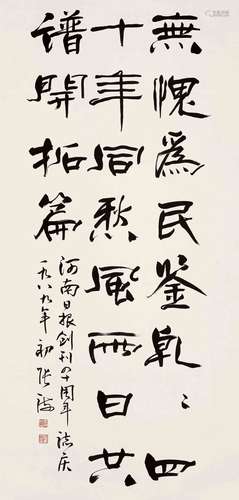 無愧爲民鉴乾〻四
十年同愁風雨日共
谱開拓篇
河南日报创刊四十周年誌庆
一九八九年初張海